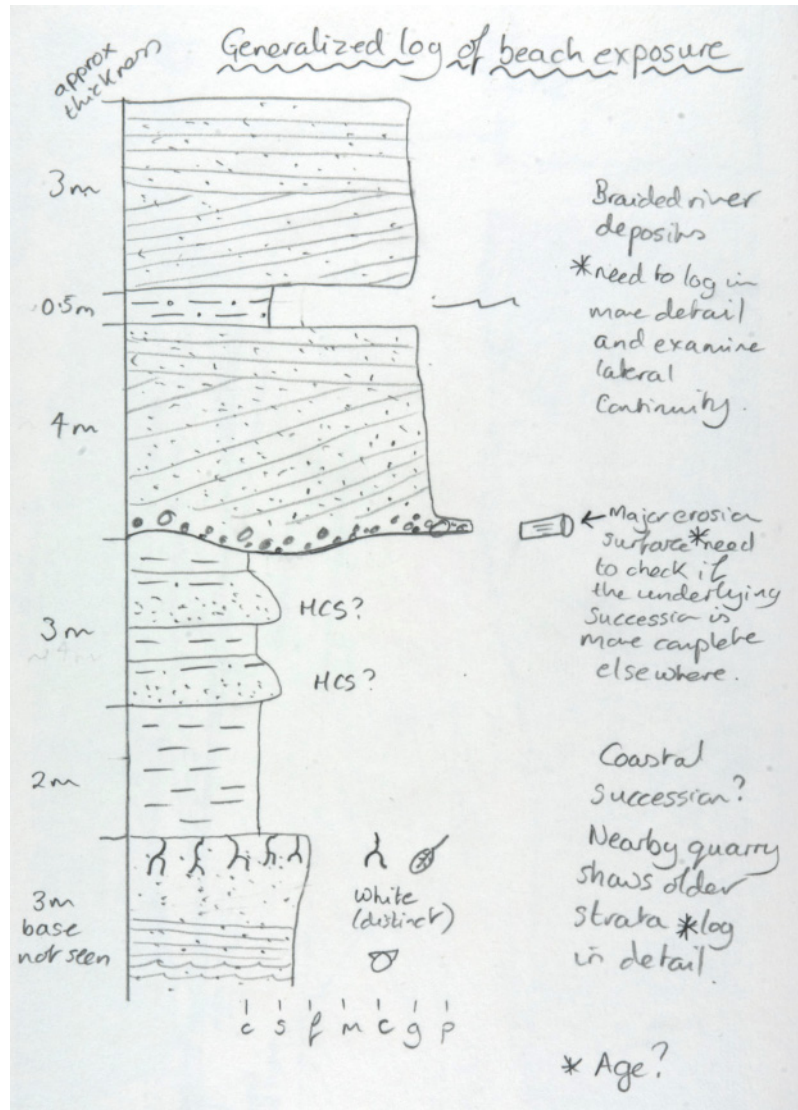 Generalized log of beach exposure
approx
thickness
3m
Braided river
deposits
*need to log in
more detail
and examine
lateral
continuity.
0.5m
4m
← Major erosion
surface *need
to check if
the underlying
succession is
more complete
elsewhere.
HCS?
3m
HCS?
2m
Coastal
succession?
Nearby quarry
shows older
strata *log
in detail.
3m
base
not seen
White
(distinct)
c s f m c g p
* Age?